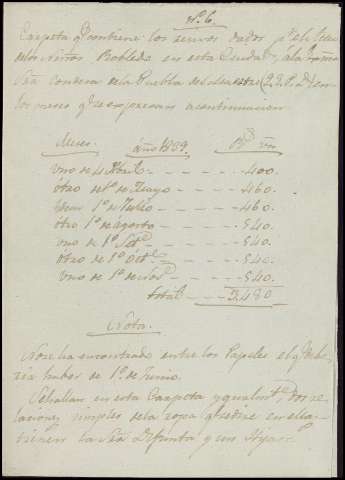 nº 6
Carpeta q contiene los dados
de Niños Robledo en esta Ciudad, á la
Sra Condesa de la Puebla de (Q.E.P.D.) en
los meses q se expresan a continuacion
Meses. año 1809. Rs vn
vno de 4 Abril - - - 400.
ótro de 1º de Mayo - - 460.
Idem 1º de Julio - - - 460.
ótro 1º de Agosto - - - 540.
vno de 1º Set.e - - - 540.
ótro de 1º Oct.e - - - 540.
vno de 1º de Nov.e - - - 540.
total - - - 3.480
Nota.
No se ha encontrado entre los Papeles el q debe
ría haber de 1º de Junio.
Se hallan en esta Carpeta y dos re
laciones simples de la ropa q se dice en ella
tienen la Sra Difunta y un Hijo